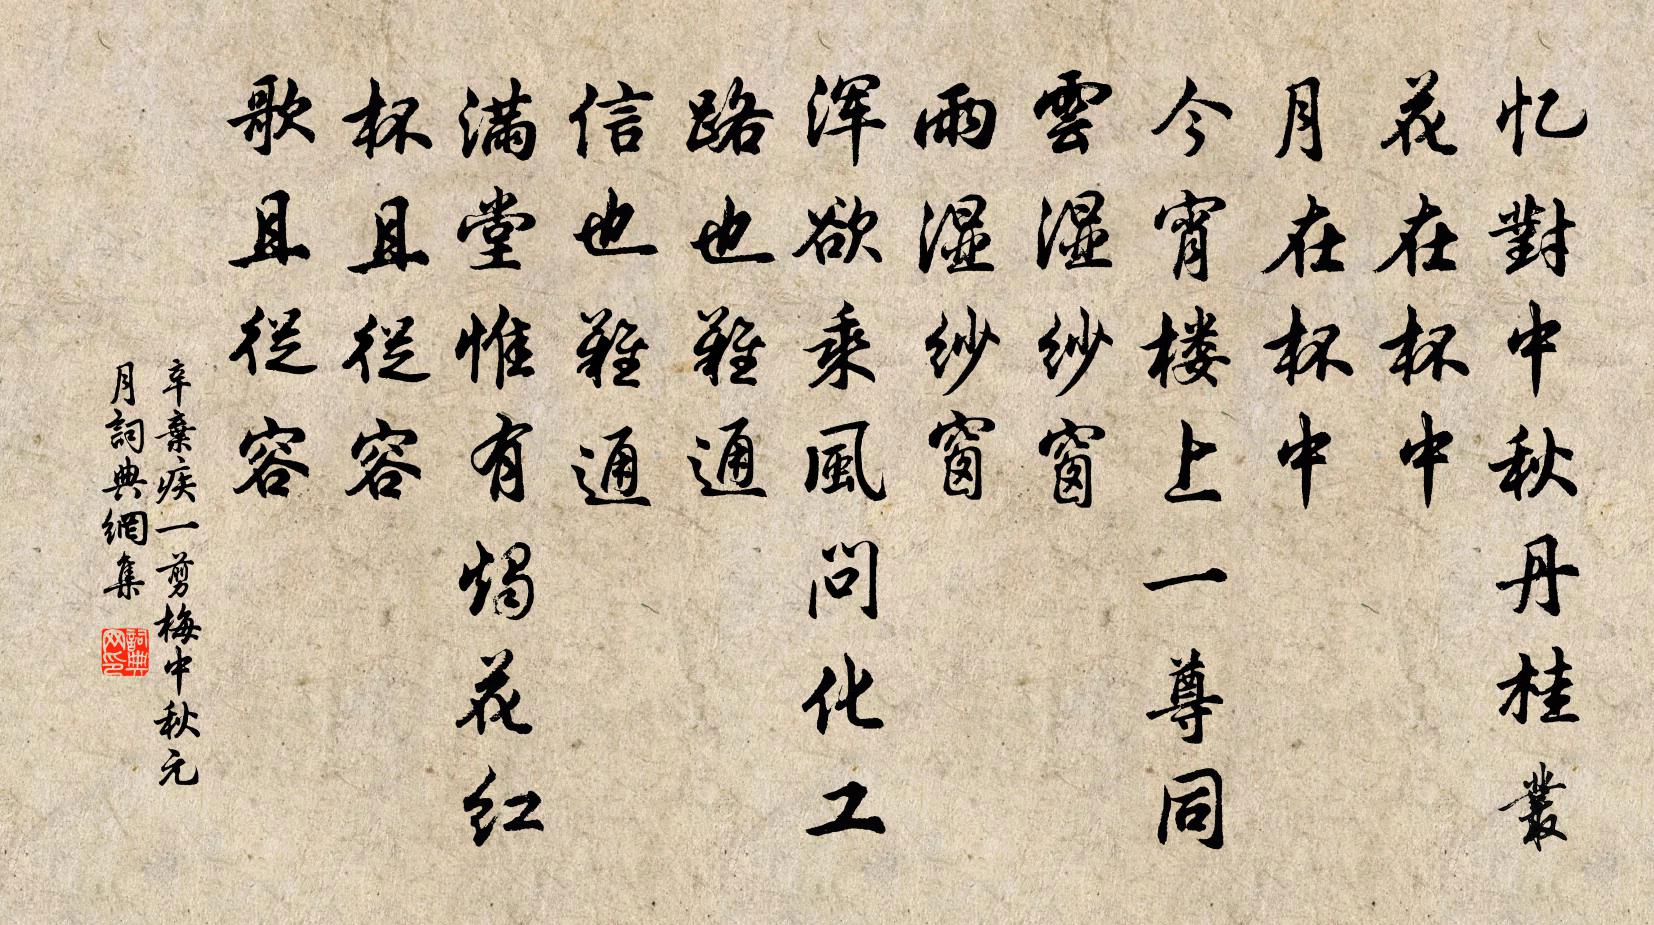 忆對中秋丹桂叢
花在杯中
月在杯中
今宵楼上一尊同
雲湿纱窗
雨湿纱窗
浑欲乘風问化工
路也難通
信也難通
满堂惟有烛花红
杯且從容
歌且從容
辛棄疾一剪梅中秋元
月詞典網集
詞典网印